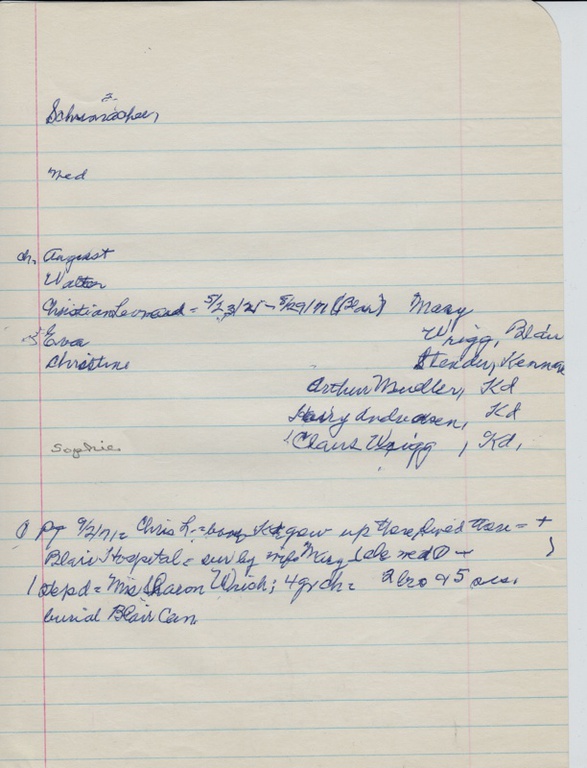 Schumacher,
Ned
ch. August
Walter
Christian Leonard = 5/23/25 - 8/29/71 (Blair) Mary
Eva Wrigg, Blair
Christine Stender, Kennard
Arthur Mudler, Kd
Harry Andersen, Kd
Sophie Claus Wrigg, Kd,
9/2/71 = Chris L. = born Kd grew up there lived there = +
Blair Hospital = sur by wife Mary
1 stepd = Mrs Sharon Wrich; 4 gr ch = 2 bro & 5 sis.
burial Blair Cem